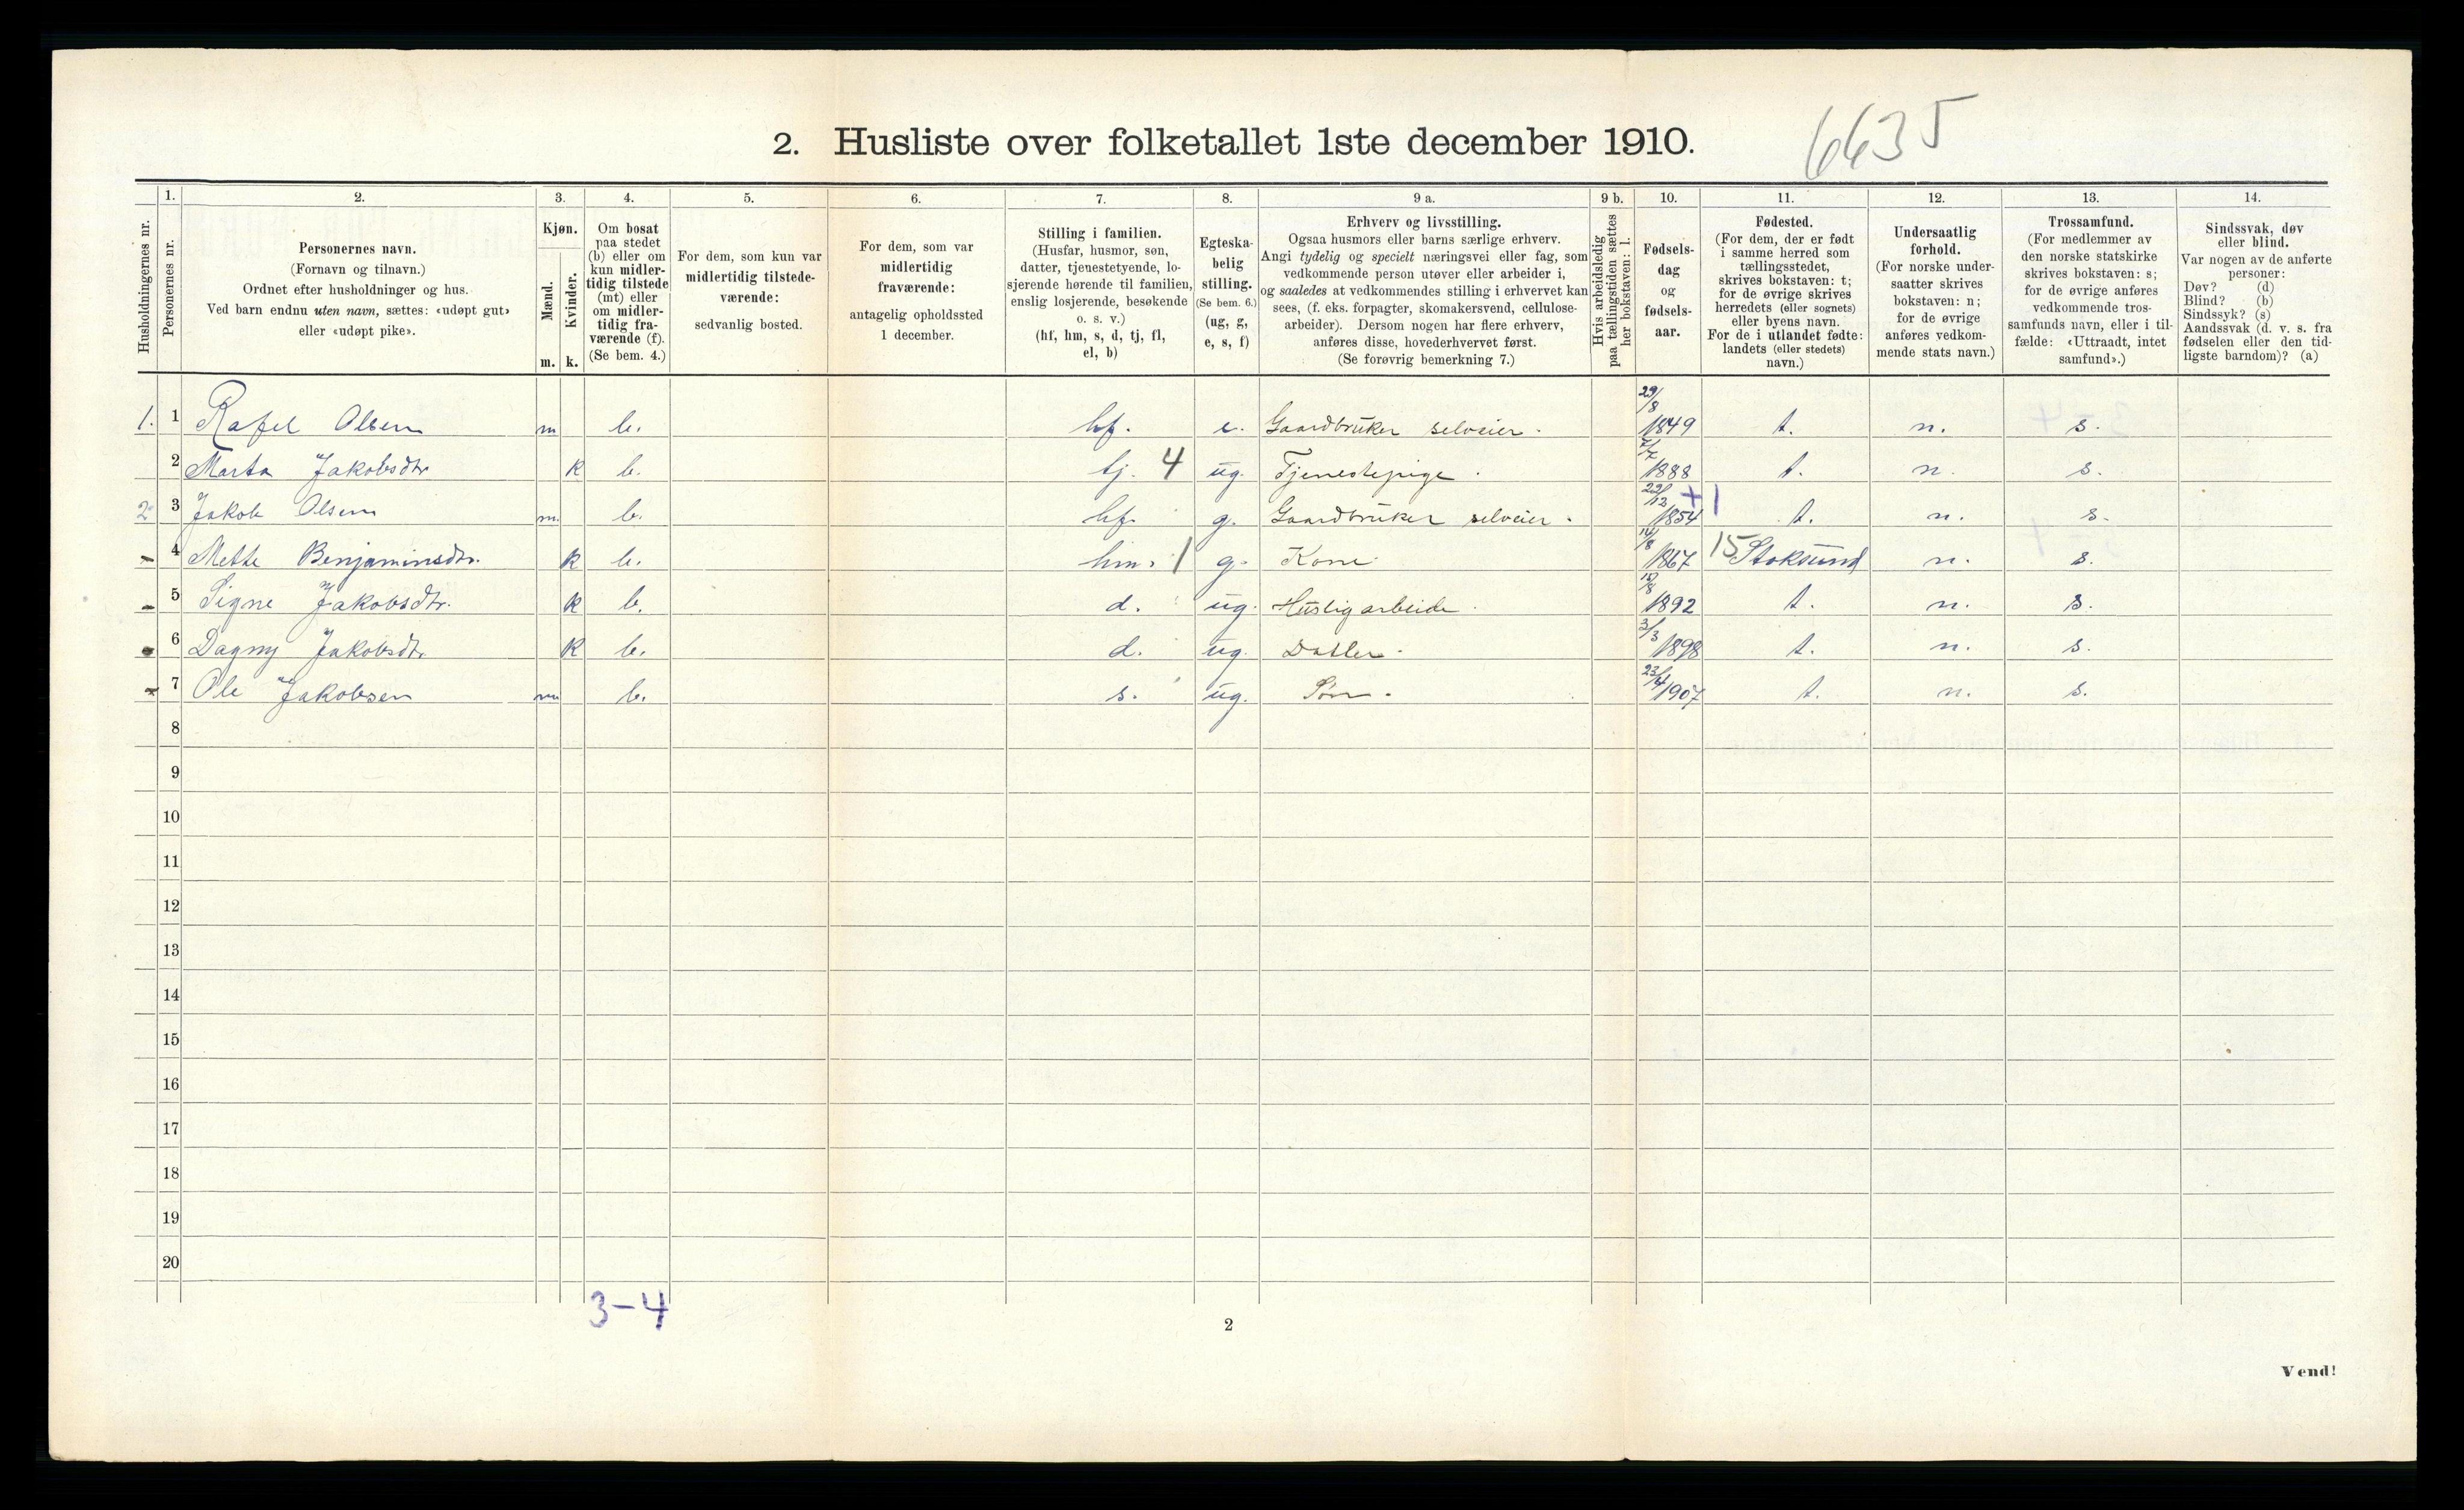 6635
2. Husliste over folketallet 1ste december 1910.
Husholdningernes nr.
1.
Personernes nr.
2.
Personernes navn.
(Fornavn og tilnavn.)
Ordnet efter husholdninger og hus.
Ved barn endnu uten navn, sættes: «udøpt gut»
eller «udøpt pike».
3.
Kjøn.
Mænd.
Kvinder.
m. k.
4.
Om bosat
paa stedet
(b) eller om
kun midler-
tidig tilstede
(mt) eller
om midler-
tidig fra-
værende (f).
(Se bem. 4.)
5.
For dem, som kun var
midlertidig tilstede-
værende:
sedvanlig bosted.
6.
For dem, som var
midlertidig
fraværende:
antagelig opholdssted
1 december.
7.
Stilling i familien.
(Husfar, husmor, søn,
datter, tjenestetyende, lo-
sjerende hørende til familien,
enslig losjerende, besøkende
o. s. v.)
(hf, hm, s, d, tj, fl,
el, b)
8.
Egteska-
belig
stilling.
(Se bem. 6.)
(ug, g,
e, s, f)
9 a.
Erhverv og livsstilling.
Ogsaa husmors eller barns særlige erhverv.
Angi tydelig og specielt næringsvei eller fag, som
vedkommende person utøver eller arbeider i,
og saaledes at vedkommendes stilling i erhvervet kan
sees, (f. eks. forpagter, skomakersvend, cellulose-
arbeider). Dersom nogen har flere erhverv,
anføres disse, hovederhvervet først.
(Se forøvrig bemerkning 7.)
9 b.
Hvis arbeidsledig
paa tællingstiden sættes
her bokstaven: l.
10.
Fødsels-
dag
og
fødsels-
aar.
11.
Fødested.
(For dem, der er født
i samme herred som
tællingsstedet,
skrives bokstaven: t;
for de øvrige skrives
herredets (eller sognets)
eller byens navn.
For de i utlandet fødte:
landets (eller stedets)
navn.)
12.
Undersaatlig
forhold.
(For norske under-
saatter skrives
bokstaven: n;
for de øvrige
anføres vedkom-
mende stats navn.)
13.
Trossamfund.
(For medlemmer av
den norske statskirke
skrives bokstaven: s;
for de øvrige anføres
vedkommende tros-
samfunds navn, eller i til-
fælde: «Uttraadt, intet
samfund».)
14.
Sindssvak, døv
eller blind.
Var nogen av de anførte
personer:
Døv? (d)
Blind? (b)
Sindssyk? (s)
Aandssvak (d. v. s. fra
fødselen eller den tid-
ligste barndom)? (a)
1. 1 Rafel Olsen m b. hf. e. Gaardbruker selveier. 29/8 1849 t. n. s.
2 Marta Jakobsdtr k b. tj. 4 ug. Tjenestepige. 7/7 1888 t. n. s.
2 3 Jakob Olsen m. b. hf. g. Gaardbruker selveier. 22/12 1854 +1 t. n. s.
- 4 Mette Benjaminsdtr. k b. hm. 1 g. Kone 14/8 1867 15 Stoksund n. s.
- 5 Signe Jakobsdtr. k b. d. ug. Huslig arbeide. 1892 t. n. s.
- 6 Dagny Jakobsdtr. k b. d. ug. Datter. 3/3 1898 t. n. s.
- 7 Ole Jakobsen m b. s. ug. Søn. 23/4 1907 t. n. s.
8
9
10
11
12
13
14
15
16
17
18
19
20
3-4
2
Vend!